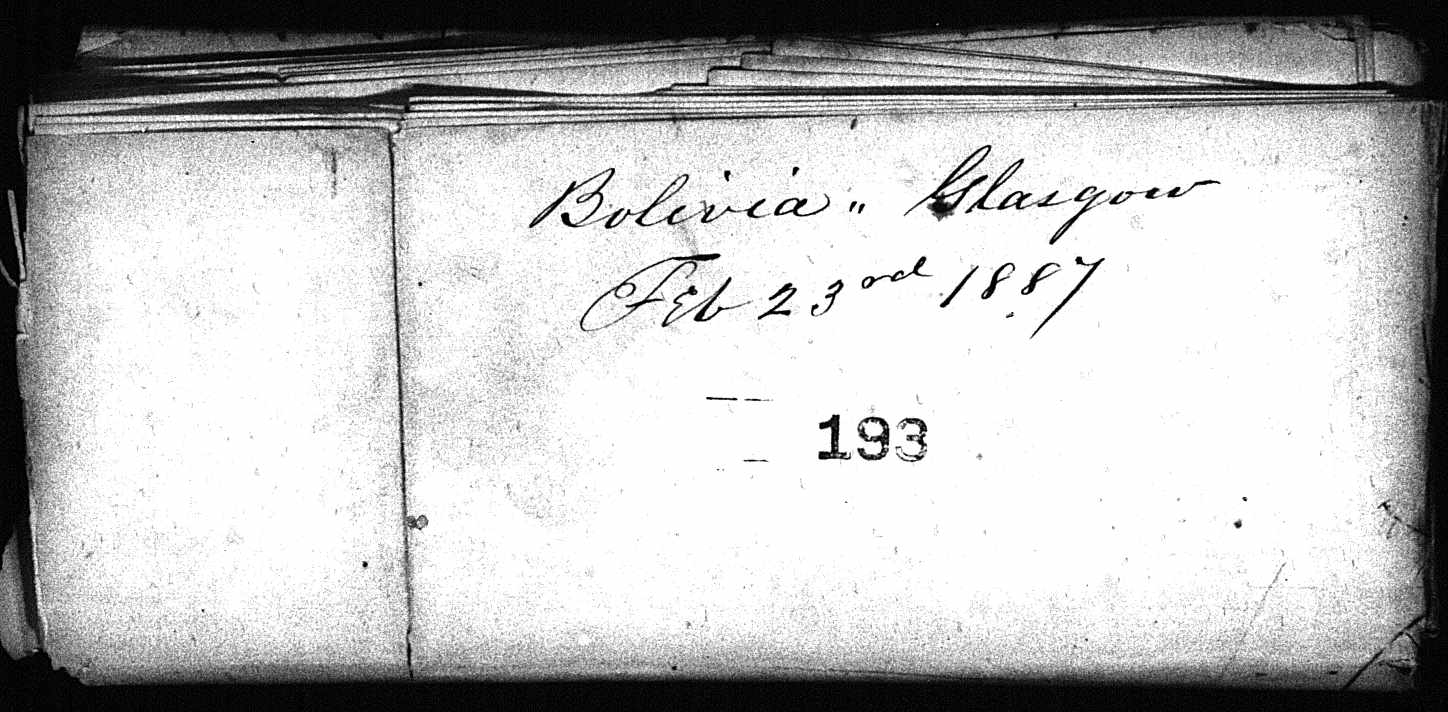 Bolivia „ Glasgow
Feb 23rd 1887
193